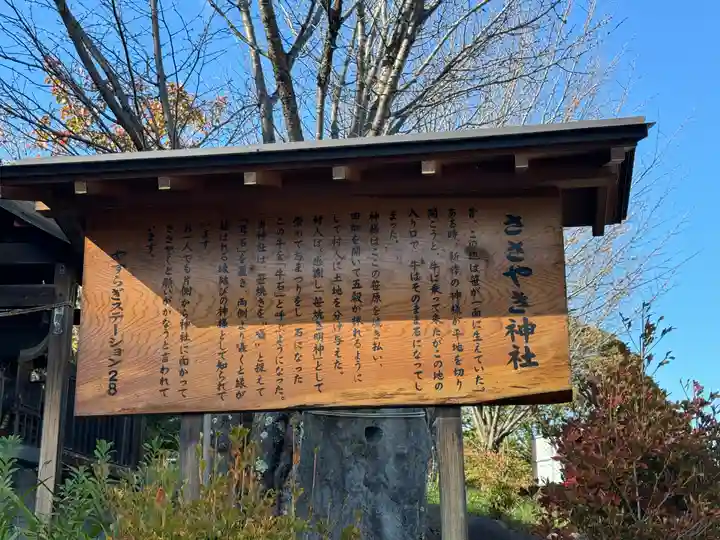 ささやき神社
昔、この辺は笹が一面に生えていた。
ある時、新海の神様が平地を切り
開こうと、牛に乗って来たがこの地の
入り口で、牛はそのまま石になってし
まった。
神様はこの笹原を焼き払い、
田畑を開いて五穀が採れるように
して村人に土地を分け与えた。
村人は、感謝し「笹焼き明神」として
崇めておまつりをし、石になった
この牛を「牛石」と呼ぶようになった。
当神社は「笹焼きを「囁」と捉えて
「耳石」を置き、両側より囁くと縁が
結ばれる縁結びの神様として知られて
います。
お一人でも片側から神社に向かって
ささやくと願いがかなうと言われて
います。
やすらぎステーション28